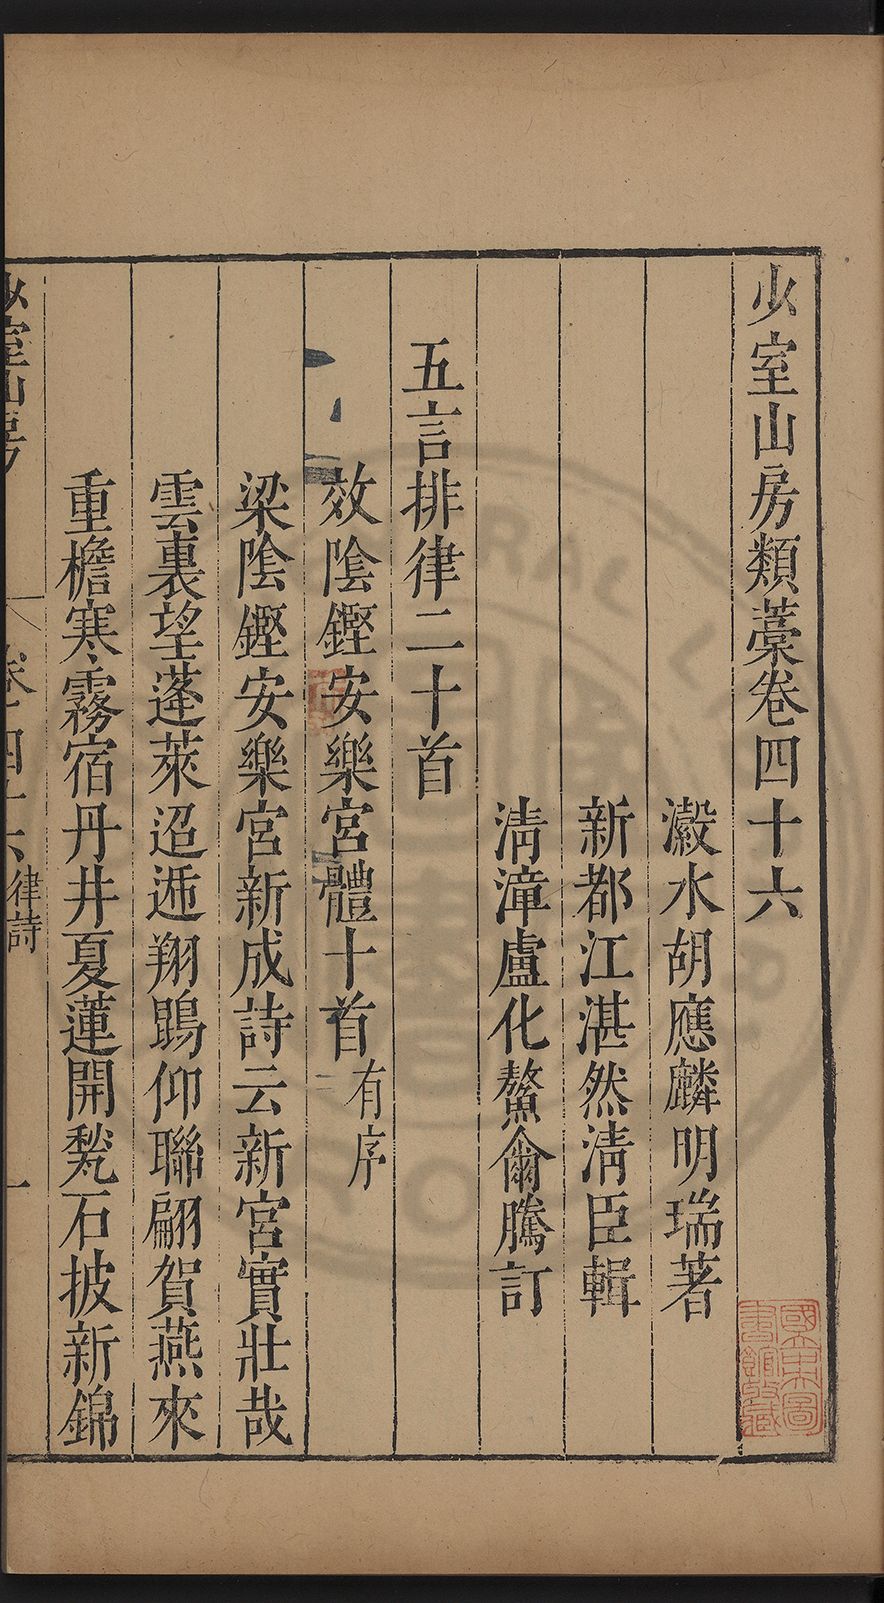 少室山房類藁卷四十六
瀫水胡應麟明瑞著
新都江湛然清臣輯
清漳盧化鰲爾騰訂
五言排律二十首
效陰鏗安樂宮體十首有序
梁陰鏗安樂宮新成詩云新宮實壯哉
雲裏望蓬萊迢遞翔鵾仰聯翩賀燕來
重檐寒霧宿丹井夏蓮開甃石披新錦
少室山房
卷四十六
律詩
一
國立中央圖書館收藏